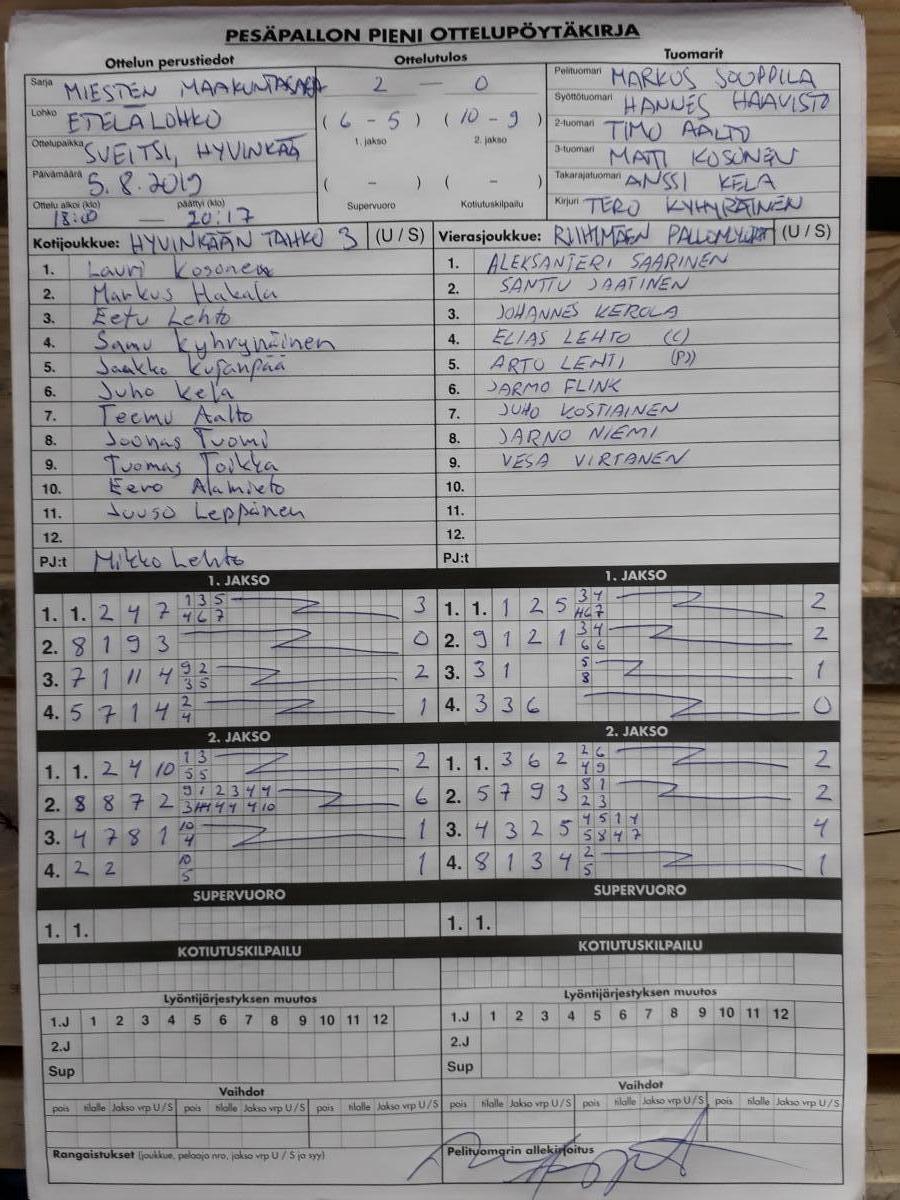 PESÄPALLON PIENI OTTELUPÖYTÄKIRJA
Ottelun perustiedot
Ottelutulos
Tuomarit
Sarja MIESTEN MAAKUNTASARJA
2 — 0
Pelituomari MARKUS SOUPPILA
Lohko ETELÄLOHKO
( 6 - 5 ) ( 10 - 9 )
1. jakso 2. jakso
Syöttötuomari HANNES HAAVISTO
Ottelupaikka SVEITSI, HYVINKÄÄ
2-tuomari TIMO AALTO
3-tuomari MATI KOSONEN
Päivämäärä 5.8.2019
( - ) ( - )
Supervuoro Kotiutuskilpailu
Takarajatuomari ANSSI KELA
Ottelu alkoi (klo) 18:00 — päättyi (klo) 20:17
Kirjuri TERO KYHYRÄINEN
Kotijoukkue: HYVINKÄÄN TAHKO 3 (U / S)
Vierasjoukkue: RIIHIMÄEN (U / S)
1. Lauri Kosonen
2. Markus Hakala
3. Eetu Lehto
4. Samu Kyhryräinen
5. Jaakko Kujanpää
6. Juho Kela
7. Teemu Aalto
8. Joonas Tuomi
9. Tuomas Toikka
10. Eero Alamieto
11. Juuso Leppänen
12.
PJ:t Mikko Lehto
1. ALEKSANTERI SAARINEN
2. SANTTU JAATINEN
3. JOHANNES KEROLA
4. ELIAS LEHTO (C)
5. ARTO LEHTI (PJ)
6. JARMO FLINK
7. JUHO KOSTIAINEN
8. JARNO NIEMI
9. VESA VIRTANEN
10.
11.
12.
PJ:t
1. JAKSO
1. 1. 2 4 7 1 3 5 3
4 6 7
2. 8 1 9 3 0
3. 7 1 11 4 9 2 2
3 5
4. 5 7 1 4 2 1
4
1. JAKSO
1. 1. 1 2 5 3 4 2
6 7
2. 9 1 2 1 3 4 2
6 6
3. 3 1 5 1
8
4. 3 3 6 0
2. JAKSO
1. 1. 2 4 10 1 3 2
5 5
2. 8 8 7 2 9 1 2 3 4 4 6
3 4 4 4 10
3. 4 7 8 1 10 1
4
4. 2 2 10 1
5
2. JAKSO
1. 1. 3 6 2 2 6 2
4 9
2. 5 7 9 3 8 1 2
2 3
3. 4 3 2 5 4 5 1 4 4
5 8 4 7
4. 8 1 3 4 2 1
5
SUPERVUORO
1. 1.
SUPERVUORO
1. 1.
KOTIUTUSKILPAILU
KOTIUTUSKILPAILU
Lyöntijärjestyksen muutos
1.J 1 2 3 4 5 6 7 8 9 10 11 12
2.J
Sup
Lyöntijärjestyksen muutos
1.J 1 2 3 4 5 6 7 8 9 10 11 12
2.J
Sup
Vaihdot
pois tilalle Jakso vrp U / S pois tilalle Jakso vrp U / S pois tilalle Jakso vrp U / S
Vaihdot
pois tilalle Jakso vrp U / S pois tilalle Jakso vrp U / S pois tilalle Jakso vrp U / S
Rangaistukset (joukkue, pelaaja nro, jakso vrp U / S ja syy)
Pelituomarin allekirjoitus